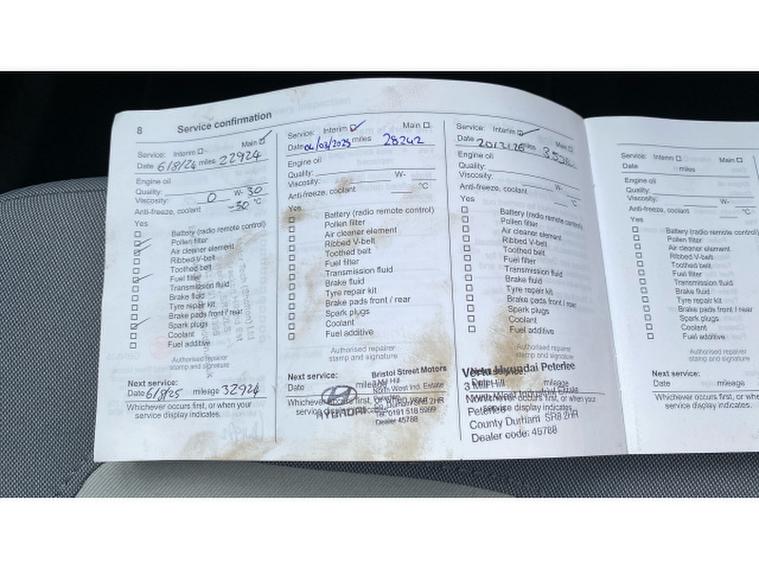 8 Service confirmation
Service: Interim Main
Date 6/8/24 miles 22924
Engine oil
Quality: W- 30
Viscosity: 0
Anti-freeze, coolant -30 °C
Yes
Battery (radio remote control)
Pollen filter
Air cleaner element
Ribbed V-belt
Toothed belt
Fuel filter
Transmission fluid
Brake fluid
Tyre repair kit
Brake pads front / rear
Spark plugs
Coolant
Fuel additive
Authorised repairer
stamp and signature
Next service:
Date 6/8/25 mileage 32924
Whichever occurs first, or when your
service display indicates.
Service: Interim Main
Date 04/03/2025 miles 28242
Engine oil
Quality:
Viscosity: W-
Anti-freeze, coolant °C
Yes
Battery (radio remote control)
Pollen filter
Air cleaner element
Ribbed V-belt
Toothed belt
Fuel filter
Transmission fluid
Brake fluid
Tyre repair kit
Brake pads front / rear
Spark plugs
Coolant
Fuel additive
Authorised repairer
stamp and signature
Next service:
Bristol Street Motors
Date
Mill Hill
North West Ind. Estate
HYUNDAI
SR8 2HR
Tel: 0191 518 5999
Dealer 45788
Service: Interim Main
Date miles
Engine oil
Quality:
Viscosity: W-
Anti-freeze, coolant °C
Yes
Battery (radio remote control)
Pollen filter
Air cleaner element
Ribbed V-belt
Toothed belt
Fuel filter
Transmission fluid
Brake fluid
Tyre repair kit
Brake pads front / rear
Spark plugs
Coolant
Fuel additive
Authorised repairer
stamp and signature
Vertu Hyundai Peterlee
3 Mill Hill
mileage
North West Industrial Estate
Peterlee
County Durham SR8 2HR
Dealer code: 45788
Service: Interim Main
Date miles
Engine oil
Quality:
Viscosity: W-
Anti-freeze, coolant °C
Yes
Battery (radio remote control)
Pollen filter
Air cleaner element
Ribbed V-belt
Toothed belt
Fuel filter
Transmission fluid
Brake fluid
Tyre repair kit
Brake pads front / rear
Spark plugs
Coolant
Fuel additive
Authorised repairer
stamp and signature
Next service:
Date mileage
Whichever occurs first, or when your
service display indicates.